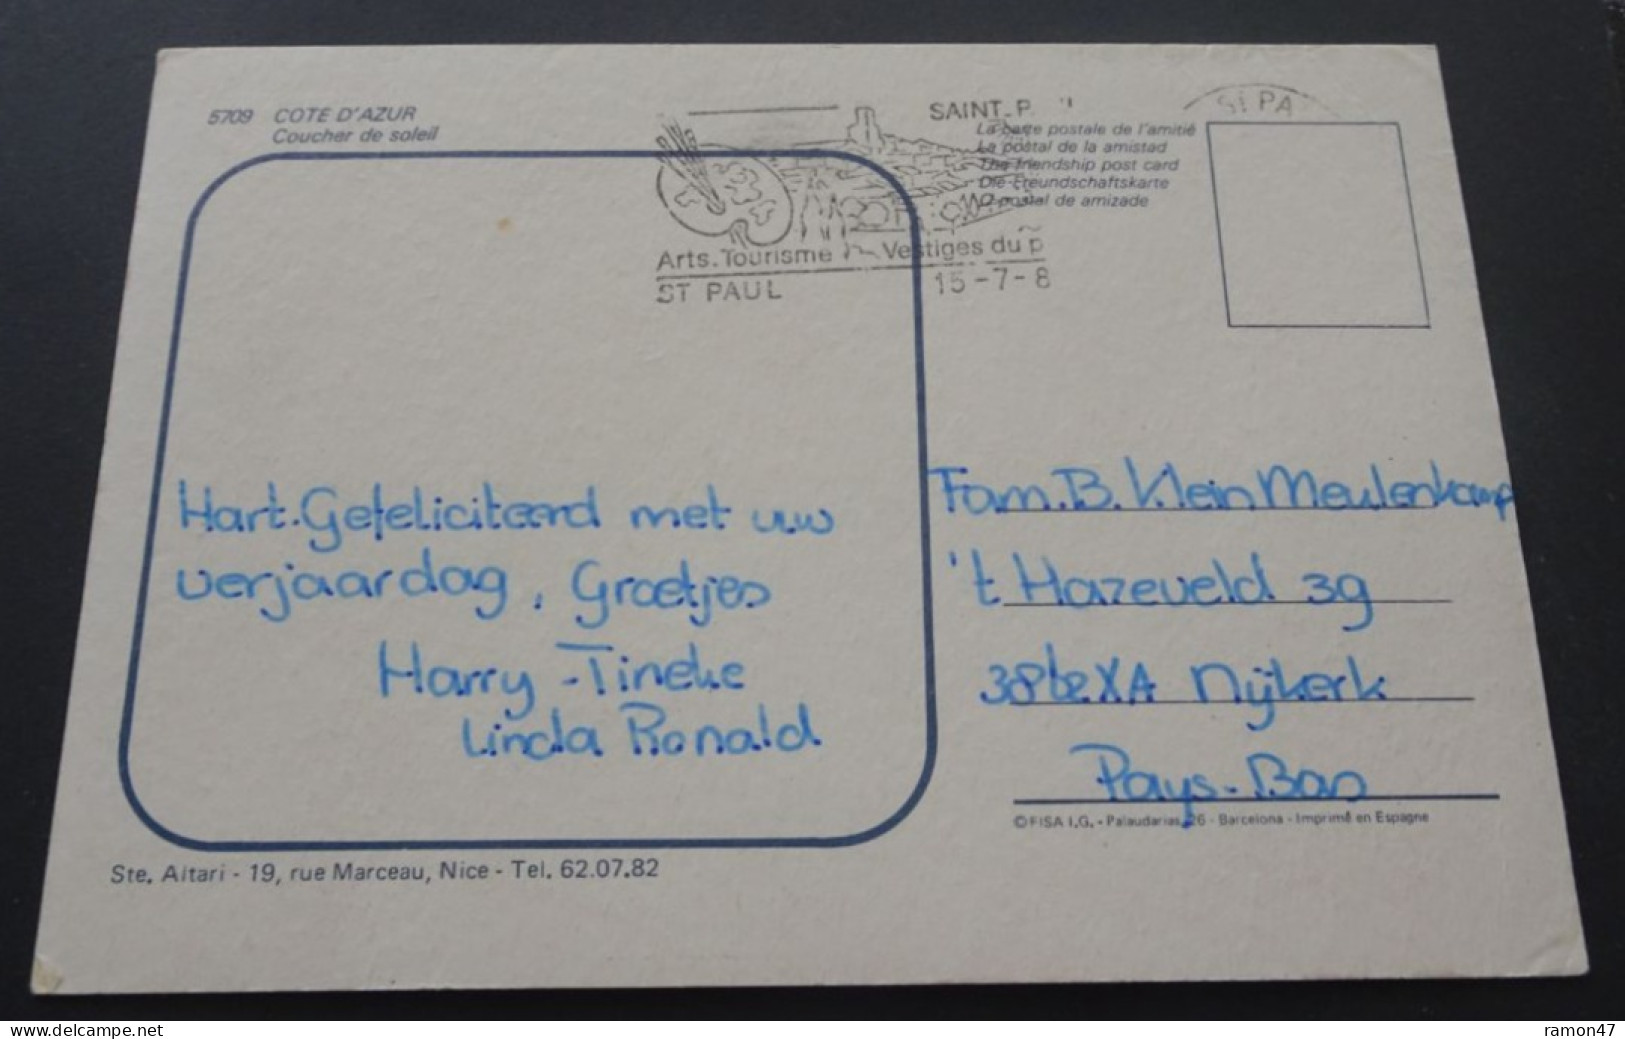 5709 COTE D'AZUR
Coucher de soleil
SAINT-P
La carte postale de l'amitié
La postal de la amistad
The friendship post card
Die Freundschaftskarte
O postal de amizade
St PA
Arts. Tourisme Vestiges du p
ST PAUL 15-7-8
Hart. Gefeliciteerd met uw
verjaardag, Groetjes
Harry - Tineke
Linda Ronald
Fam. B. Klein Meulenkamp
't Hazeveld 39
XA Nijkerk
Pays-Bas
© FISA I.G. - Palaudarias, 26 - Barcelona - Imprimé en Espagne
Ste. Altari - 19, rue Marceau, Nice - Tel. 62.07.82
www.delcampe.net
ramon47